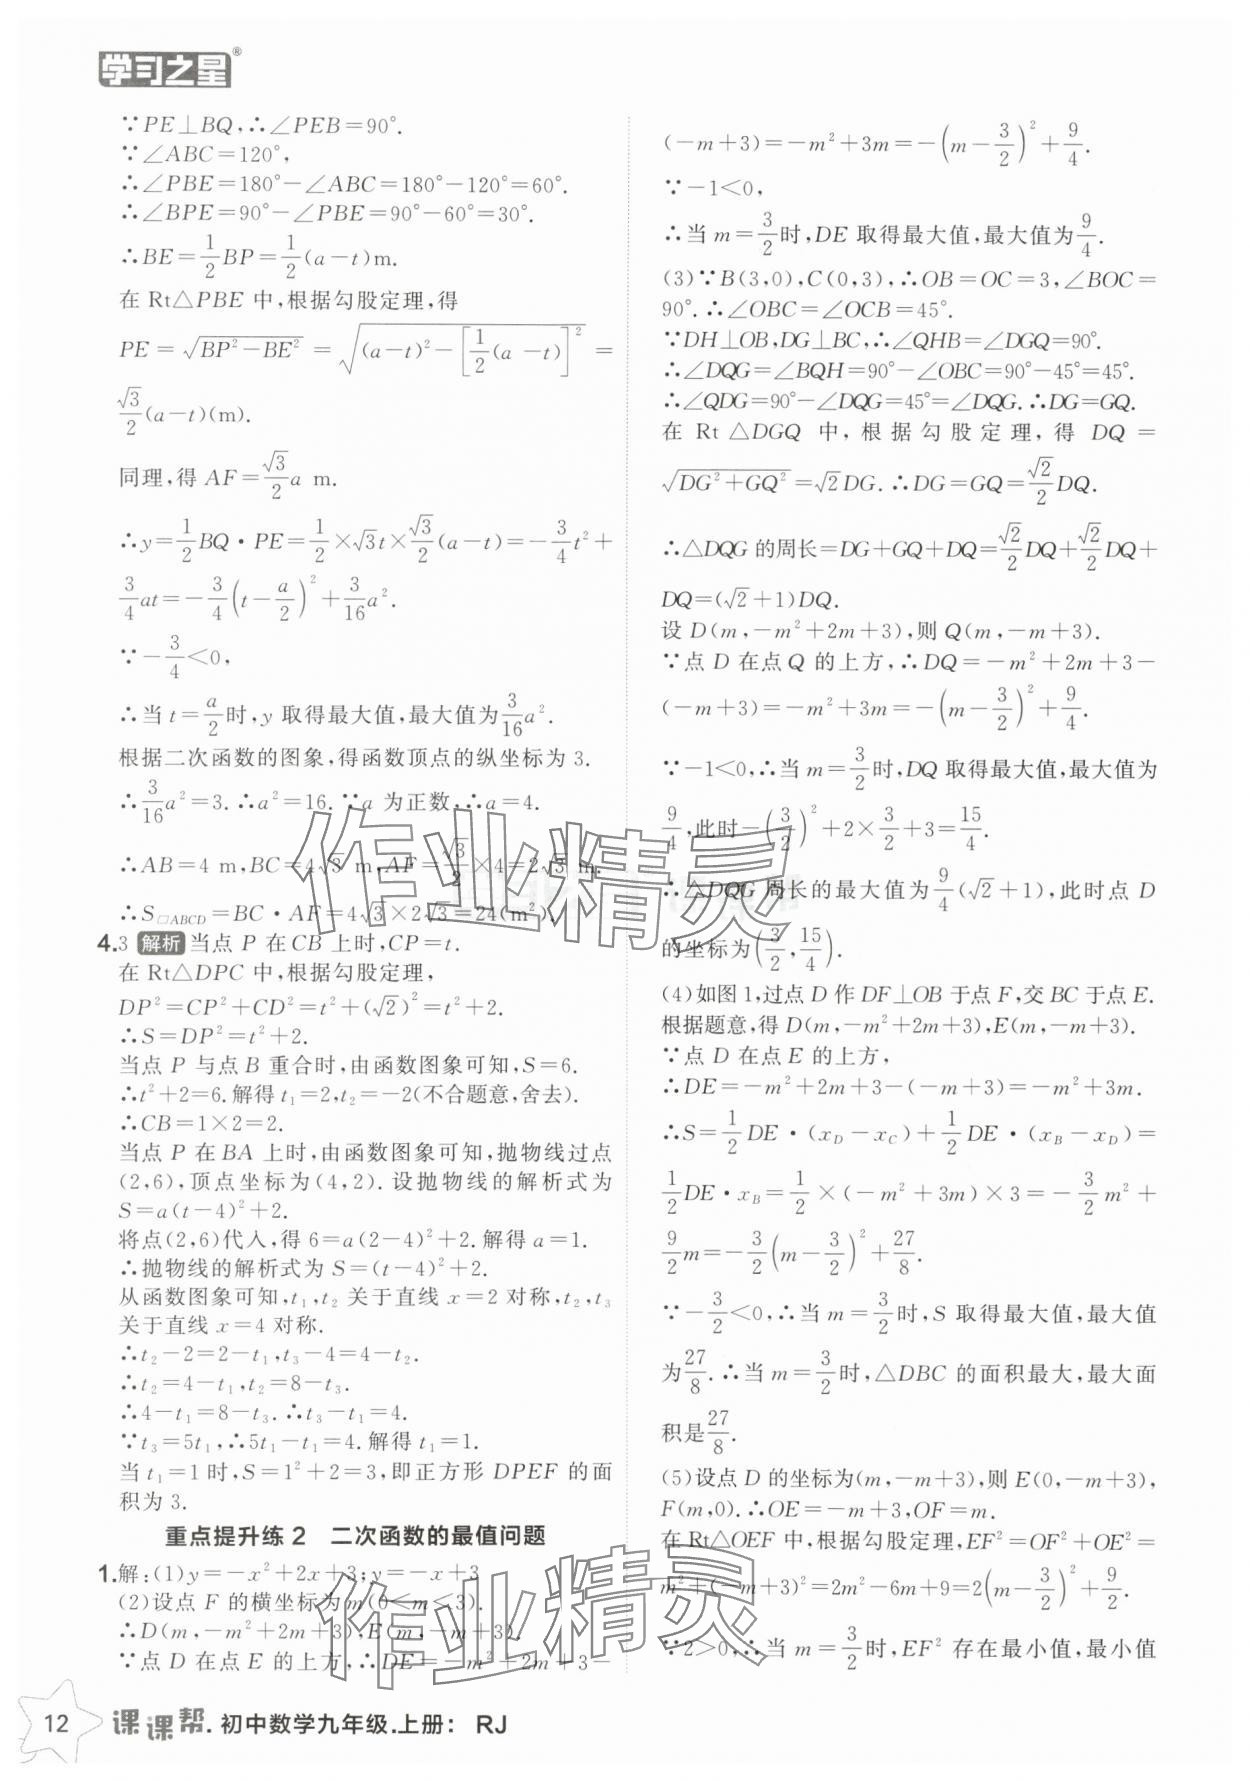 学习之星®
∵PE⊥BQ,∴∠PEB=90°.
∵∠ABC=120°,
∴∠PBE=180°-∠ABC=180°-120°=60°.
∴∠BPE=90°-∠PBE=90°-60°=30°.
∴BE=1/2BP=1/2(a-t)m.
在 Rt△PBE 中,根据勾股定理,得
PE=√(BP²-BE²)=√((a-t)²-[1/2(a-t)]²)=
√3/2(a-t)(m).
同理,得 AF=√3/2a m.
∴y=1/2BQ·PE=1/2×√3t×√3/2(a-t)=-3/4t²+
3/4at=-3/4(t-a/2)²+3/16a².
∵-3/4<0,
∴当 t=a/2时,y 取得最大值,最大值为3/16a².
根据二次函数的图象,得函数顶点的纵坐标为 3.
∴3/16a²=3.∴a²=16.∵a 为正数,∴a=4.
∴AB=4 m,BC=4√3 m,AF=√3/2×4=2√3 m.
∴S□ABCD=BC·AF=4√3×2√3=24(m²).
4.3 解析 当点 P 在 CB 上时,CP=t.
在 Rt△DPC 中,根据勾股定理,
DP²=CP²+CD²=t²+(√2)²=t²+2.
∴S=DP²=t²+2.
当点 P 与点 B 重合时,由函数图象可知,S=6.
∴t²+2=6.解得 t₁=2,t₂=-2(不合题意,舍去).
∴CB=1×2=2.
当点 P 在 BA 上时,由函数图象可知,抛物线过点
(2,6),顶点坐标为(4,2).设抛物线的解析式为
S=a(t-4)²+2.
将点(2,6)代入,得 6=a(2-4)²+2.解得 a=1.
∴抛物线的解析式为 S=(t-4)²+2.
从函数图象可知,t₁,t₂ 关于直线 x=2 对称,t₂,t₃
关于直线 x=4 对称.
∴t₂-2=2-t₁,t₃-4=4-t₂.
∴t₂=4-t₁,t₂=8-t₃.
∴4-t₁=8-t₃.∴t₃-t₁=4.
∵t₃=5t₁,∴5t₁-t₁=4.解得 t₁=1.
当 t₁=1 时,S=1²+2=3,即正方形 DPEF 的面
积为 3.
重点提升练 2 二次函数的最值问题
1.解:(1)y=-x²+2x+3;y=-x+3
(2)设点 F 的横坐标为 m(0<m<3).
∴D(m,-m²+2m+3),E(m,-m+3).
∵点 D 在点 E 的上方,∴DE=-m²+2m+3-
(-m+3)=-m²+3m=-(m-3/2)²+9/4.
∵-1<0,
∴当 m=3/2时,DE 取得最大值,最大值为9/4.
(3)∵B(3,0),C(0,3),∴OB=OC=3,∠BOC=
90°.∴∠OBC=∠OCB=45°.
∵DH⊥OB,DG⊥BC,∴∠QHB=∠DGQ=90°.
∴∠DQG=∠BQH=90°-∠OBC=90°-45°=45°.
∴∠QDG=90°-∠DQG=45°=∠DQG.∴DG=GQ.
在 Rt△DGQ 中,根据勾股定理,得 DQ=
√(DG²+GQ²)=√2DG.∴DG=GQ=√2/2DQ.
∴△DQG 的周长=DG+GQ+DQ=√2/2DQ+√2/2DQ+
DQ=(√2+1)DQ.
设 D(m,-m²+2m+3),则 Q(m,-m+3).
∵点 D 在点 Q 的上方,∴DQ=-m²+2m+3-
(-m+3)=-m²+3m=-(m-3/2)²+9/4.
∵-1<0,∴当 m=3/2时,DQ 取得最大值,最大值为
9/4,此时-(3/2)²+2×3/2+3=15/4.
∴△DQG 周长的最大值为9/4(√2+1),此时点 D
的坐标为(3/2,15/4).
(4)如图1,过点 D 作 DF⊥OB 于点 F,交 BC 于点 E.
根据题意,得 D(m,-m²+2m+3),E(m,-m+3).
∵点 D 在点 E 的上方,
∴DE=-m²+2m+3-(-m+3)=-m²+3m.
∴S=1/2DE·(x_D-x_C)+1/2DE·(x_B-x_D)=
1/2DE·x_B=1/2×(-m²+3m)×3=-3/2m²+
9/2m=-3/2(m-3/2)²+27/8.
∵-3/2<0,∴当 m=3/2时,S 取得最大值,最大值
为27/8.∴当 m=3/2时,△DBC 的面积最大,最大面
积是27/8.
(5)设点 D 的坐标为(m,-m+3),则 E(0,-m+3),
F(m,0).∴OE=-m+3,OF=m.
在Rt△OEF 中,根据勾股定理,EF²=OF²+OE²=
m²+(-m+3)²=2m²-6m+9=2(m-3/2)²+9/2.
∵2>0,∴当 m=3/2时,EF² 存在最小值,最小值
作业精灵
作业精灵
12 课课帮.初中数学九年级.上册: RJ